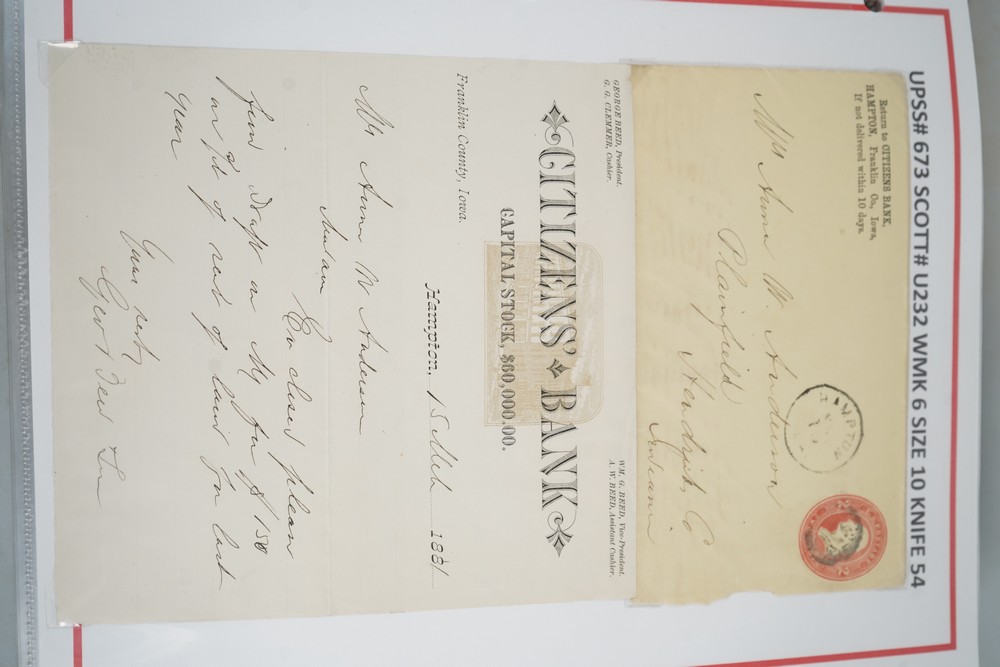 UPSS# 673 SCOTT# U232 WMK 6 SIZE 10 KNIFE 54
Return to CITIZENS BANK,
HAMPTON, Franklin Co., Iowa,
If not delivered within 10 days.
HAMPTON
Anna W. Anderson
Plainfield
Hendricks Co
Indiana
GEORGE BEED, President.
G. G. CLEMMER, Cashier.
WM. G. BEED, Vice-President.
A. W. BEED, Assistant Cashier.
CITIZENS' BANK
CAPITAL STOCK, $60,000.00.
Franklin County, Iowa.
Hampton, 1881
Anna W Anderson
Madam
Enclosed please
find draft on N.Y. for $150
as of rent of land for last
year
Yours resty